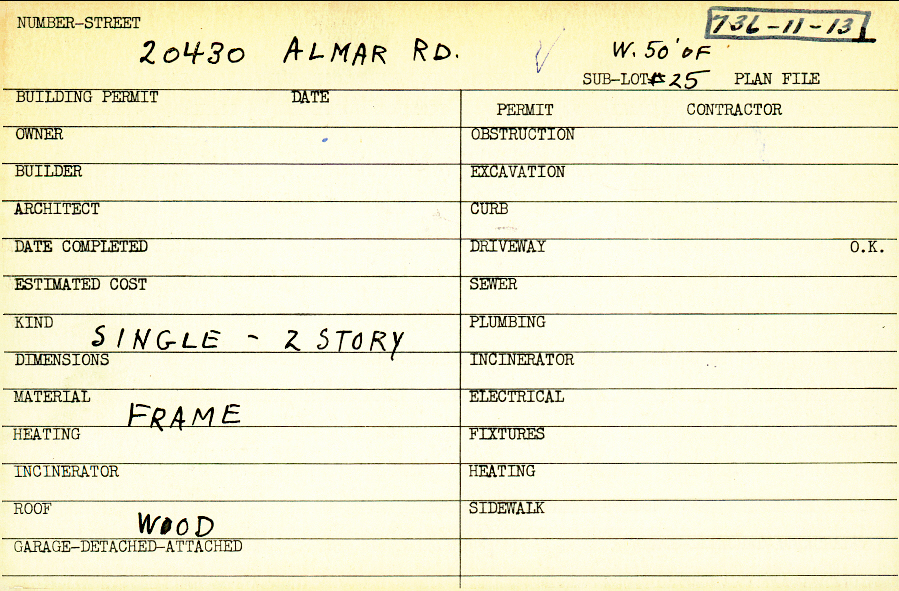 NUMBER-STREET
736-11-13
20430 ALMAR RD.
W. 50' OF
SUB-LOT #25 PLAN FILE
BUILDING PERMIT DATE
PERMIT CONTRACTOR
OWNER
OBSTRUCTION
BUILDER
EXCAVATION
ARCHITECT
CURB
DATE COMPLETED
DRIVEWAY O.K.
ESTIMATED COST
SEWER
KIND SINGLE - 2 STORY
PLUMBING
DIMENSIONS
INCINERATOR
MATERIAL FRAME
ELECTRICAL
HEATING
FIXTURES
INCINERATOR
HEATING
ROOF WOOD
SIDEWALK
GARAGE-DETACHED-ATTACHED